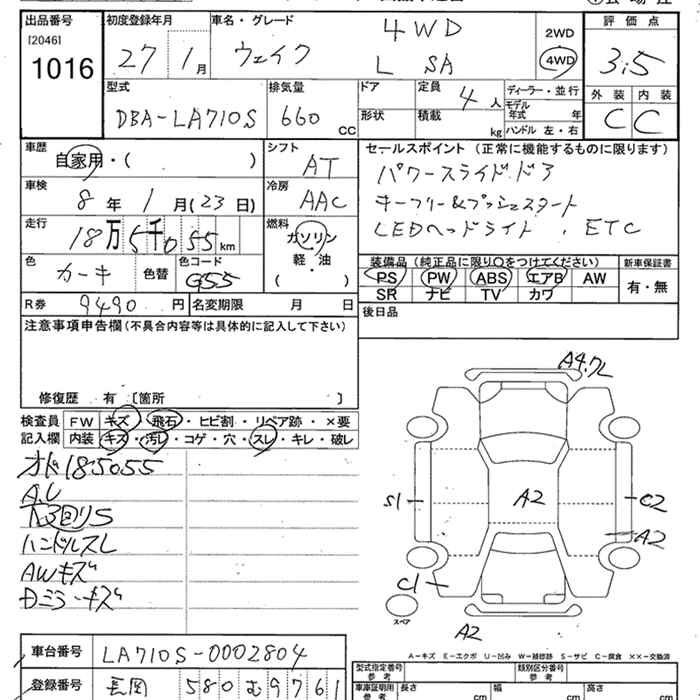 出品番号
[2046]
1016
初度登録年月
27 1 月
車名・グレード
ウェイク
4WD
L SA
2WD
4WD
評価点
3.5
外装 内装
C C
型式
DBA-LA710S
排気量
660 CC
ドア
形状
定員 4 人
積載 kg
ディーラー・並行
モデル年式 年
ハンドル 左・右
車歴
自家用・( )
シフト
AT
車検
8 年 1 月(23日)
冷房
AAC
走行
18万5千055 km
燃料
ガソリン
軽・油
( )
色
カーキ
色替
色コード
G55
R券 9490 円
名変期限 月 日
セールスポイント(正常に機能するものに限ります)
パワースライドドア
キーフリー&プッシュスタート
LEDヘッドライト . ETC
装備品(純正品に限り〇をつけてください)
新車保証書
PS PW ABS エアB AW
SR ナビ TV カワ
有・無
後日品
注意事項申告欄(不具合内容等は具体的に記入して下さい)
修復歴 有 〔箇所 〕
検査員
記入欄
FW キズ・飛石・ヒビ割・リペア跡・×要
内装 キズ・汚レ・コゲ・穴・スレ・キレ・破レ
オド185055
A.C
下回りS
ハンドルスレ
AWキズ
Dミラーキズ
A4.フL
S1
A2
C2
A2
C1
スペア
A2
A-キズ E-エクボ U-凹み W-補修跡 S-サビ C-腐食 ××-交換済
車台番号
LA710S-0002804
登録番号
長岡 580 む 9761
型式指定番号
参考
類別区分番号
参考
車庫証明用
参考
長さ cm
幅 cm
高さ cm